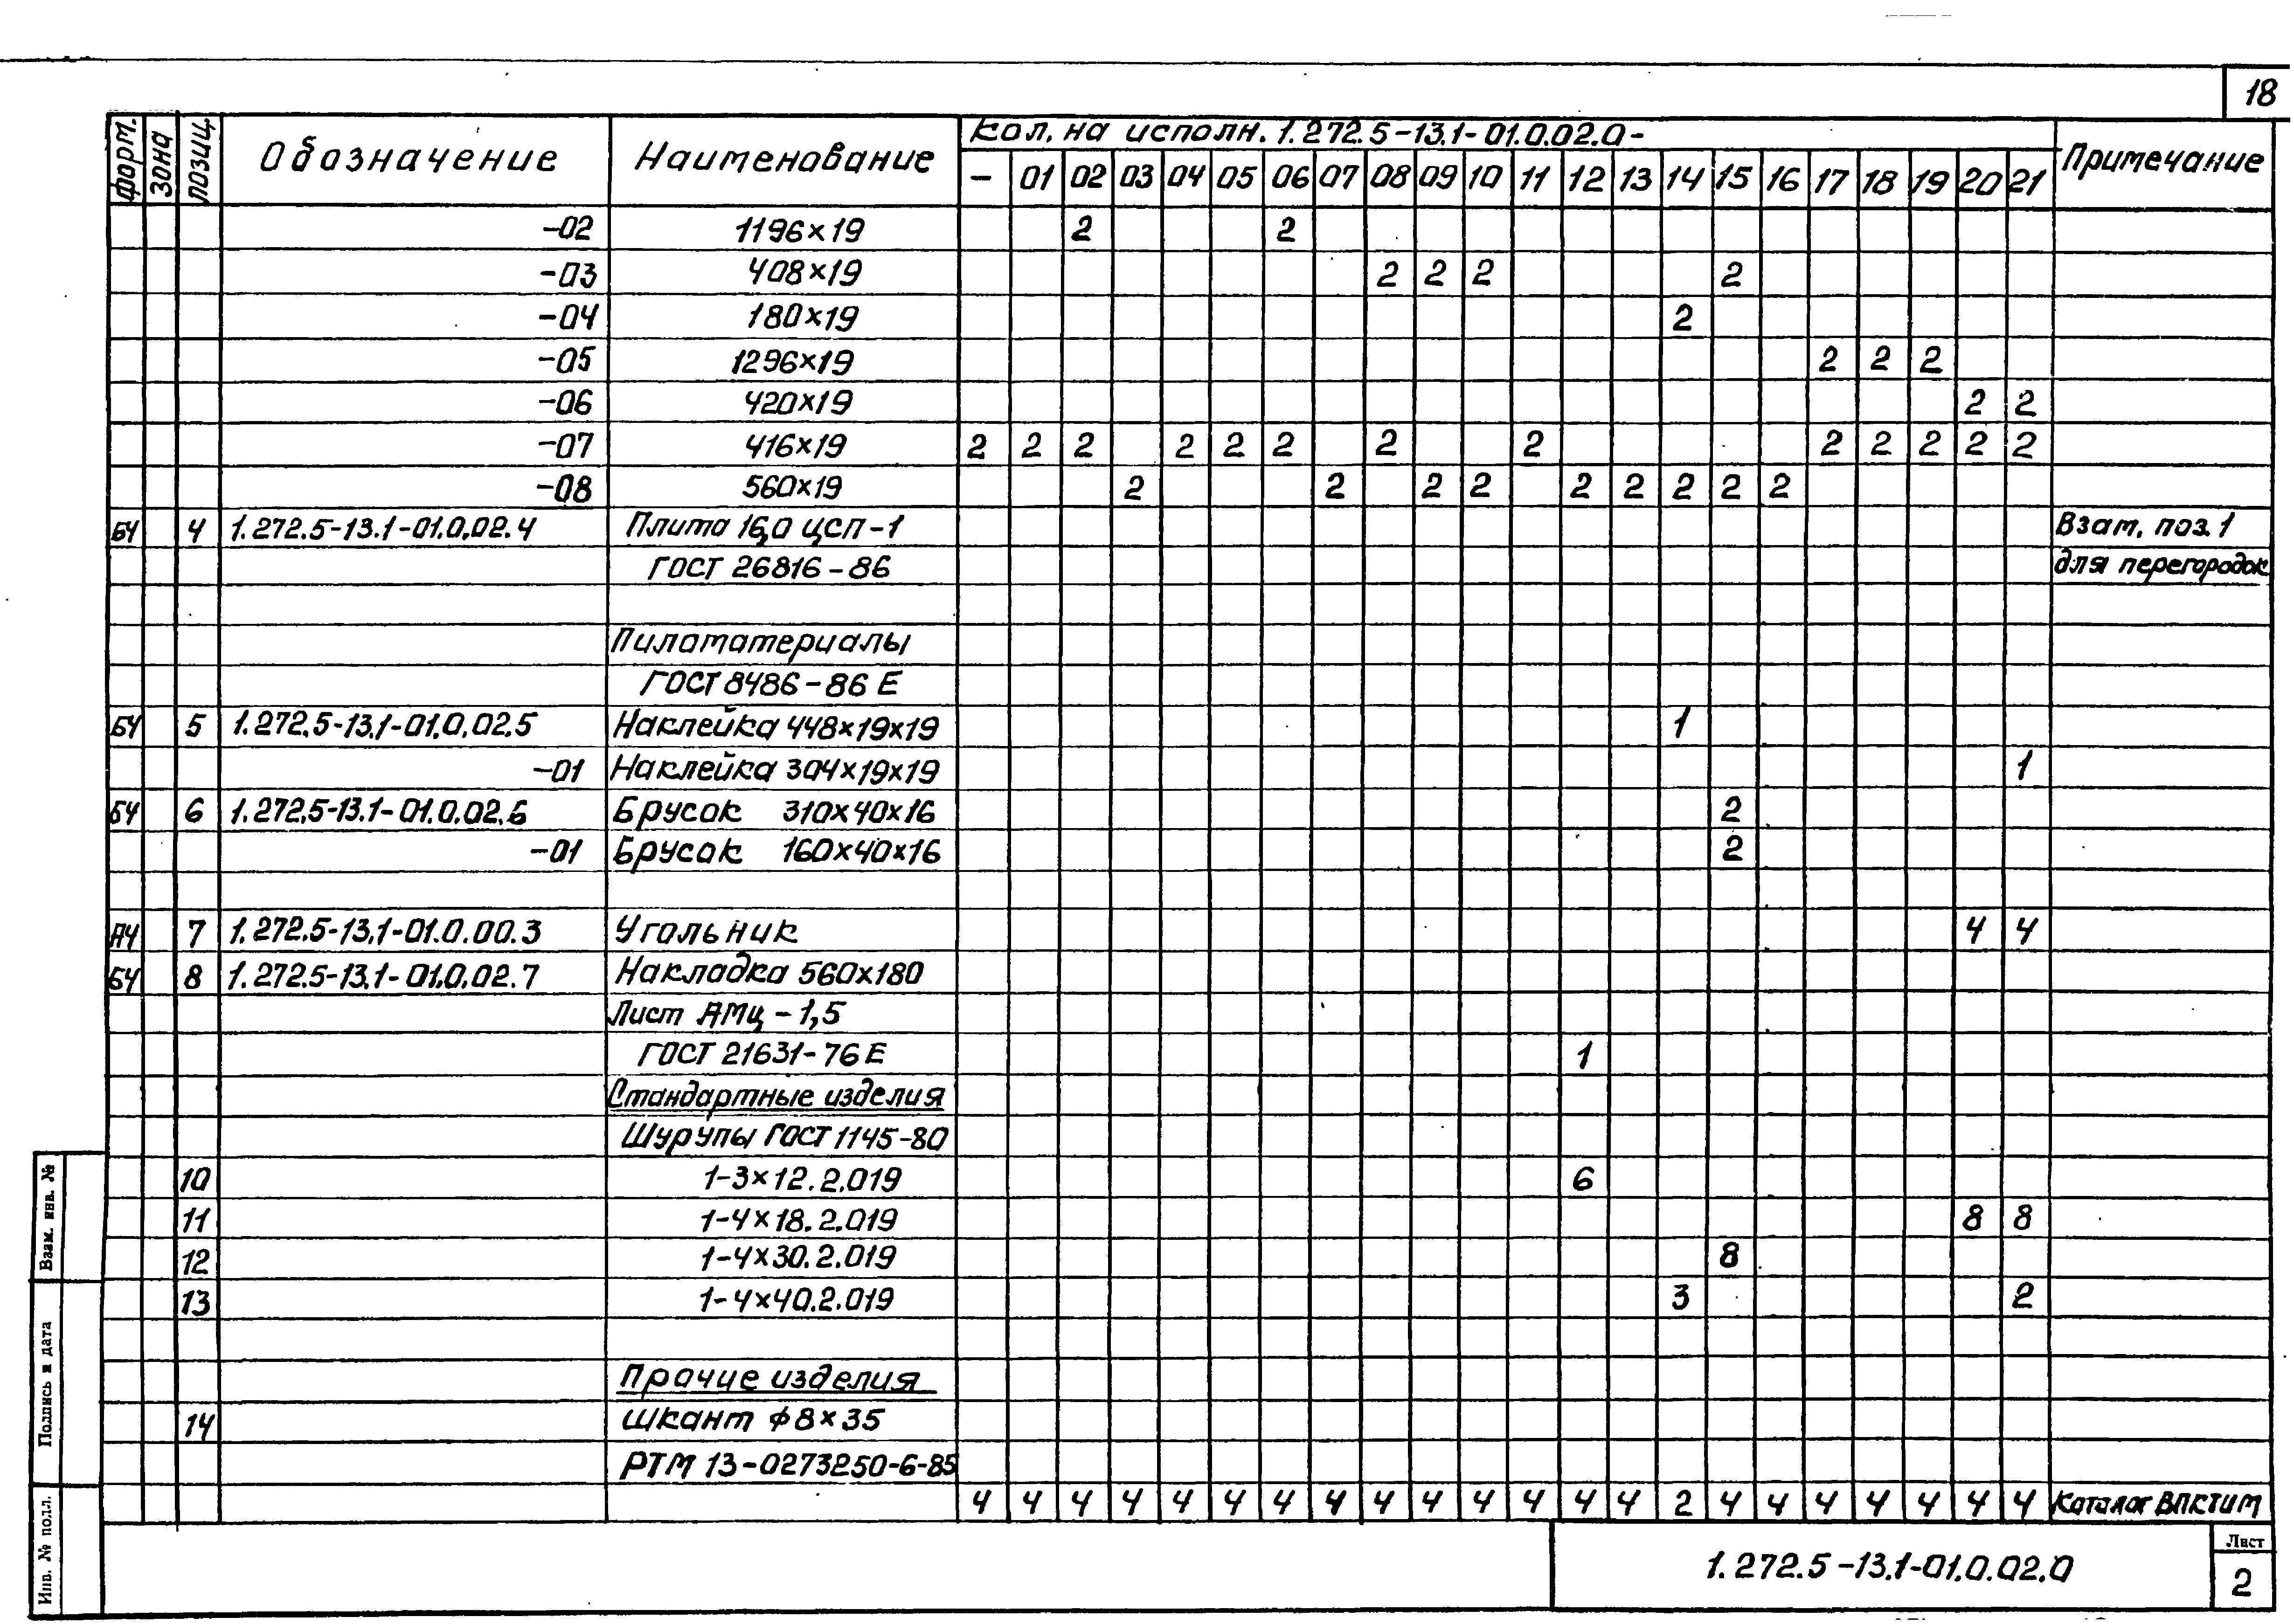 18
форм.
зона
позиц.
Обозначение
Наименование
Кол. на исполн. 1.272.5-13.1-01.0.02.0-
Примечание
- 01 02 03 04 05 06 07 08 09 10 11 12 13 14 15 16 17 18 19 20 21
-02 1196×19 2 2
-03 408×19 2 2 2 2
-04 180×19 2
-05 1296×19 2 2 2
-06 420×19 2 2
-07 416×19 2 2 2 2 2 2 2 2 2 2 2 2 2
-08 560×19 2 2 2 2 2 2 2 2 2
БЧ 4 1.272.5-13.1-01.0.02.4 Плита 16,0 ЦСП-1 Взам. поз. 1
ГОСТ 26816-86 для перегородок
Пиломатериалы
ГОСТ 8486-86 Е
БЧ 5 1.272.5-13.1-01.0.02.5 Наклейка 448×19×19 1
-01 Наклейка 304×19×19 1
БЧ 6 1.272.5-13.1-01.0.02.6 Брусок 310×40×16 2
-01 Брусок 160×40×16 2
А4 7 1.272.5-13.1-01.0.00.3 Угольник 4 4
БЧ 8 1.272.5-13.1-01.0.02.7 Накладка 560×180
Лист АМц-1,5
ГОСТ 21631-76 Е 1
Стандартные изделия
Шурупы ГОСТ 1145-80
10 1-3×12.2.019 6
11 1-4×18.2.019 8 8
12 1-4×30.2.019 8
13 1-4×40.2.019 3 2
Прочие изделия
14 Шкант ф8×35
РТМ 13-0273250-6-85
4 4 4 4 4 4 4 4 4 4 4 4 4 4 2 4 4 4 4 4 4 4 Каталог ВПКТИМ
Взам. инв. №
Подпись и дата
Инв. № подл.
1.272.5-13.1-01.0.02.0
Лист
2